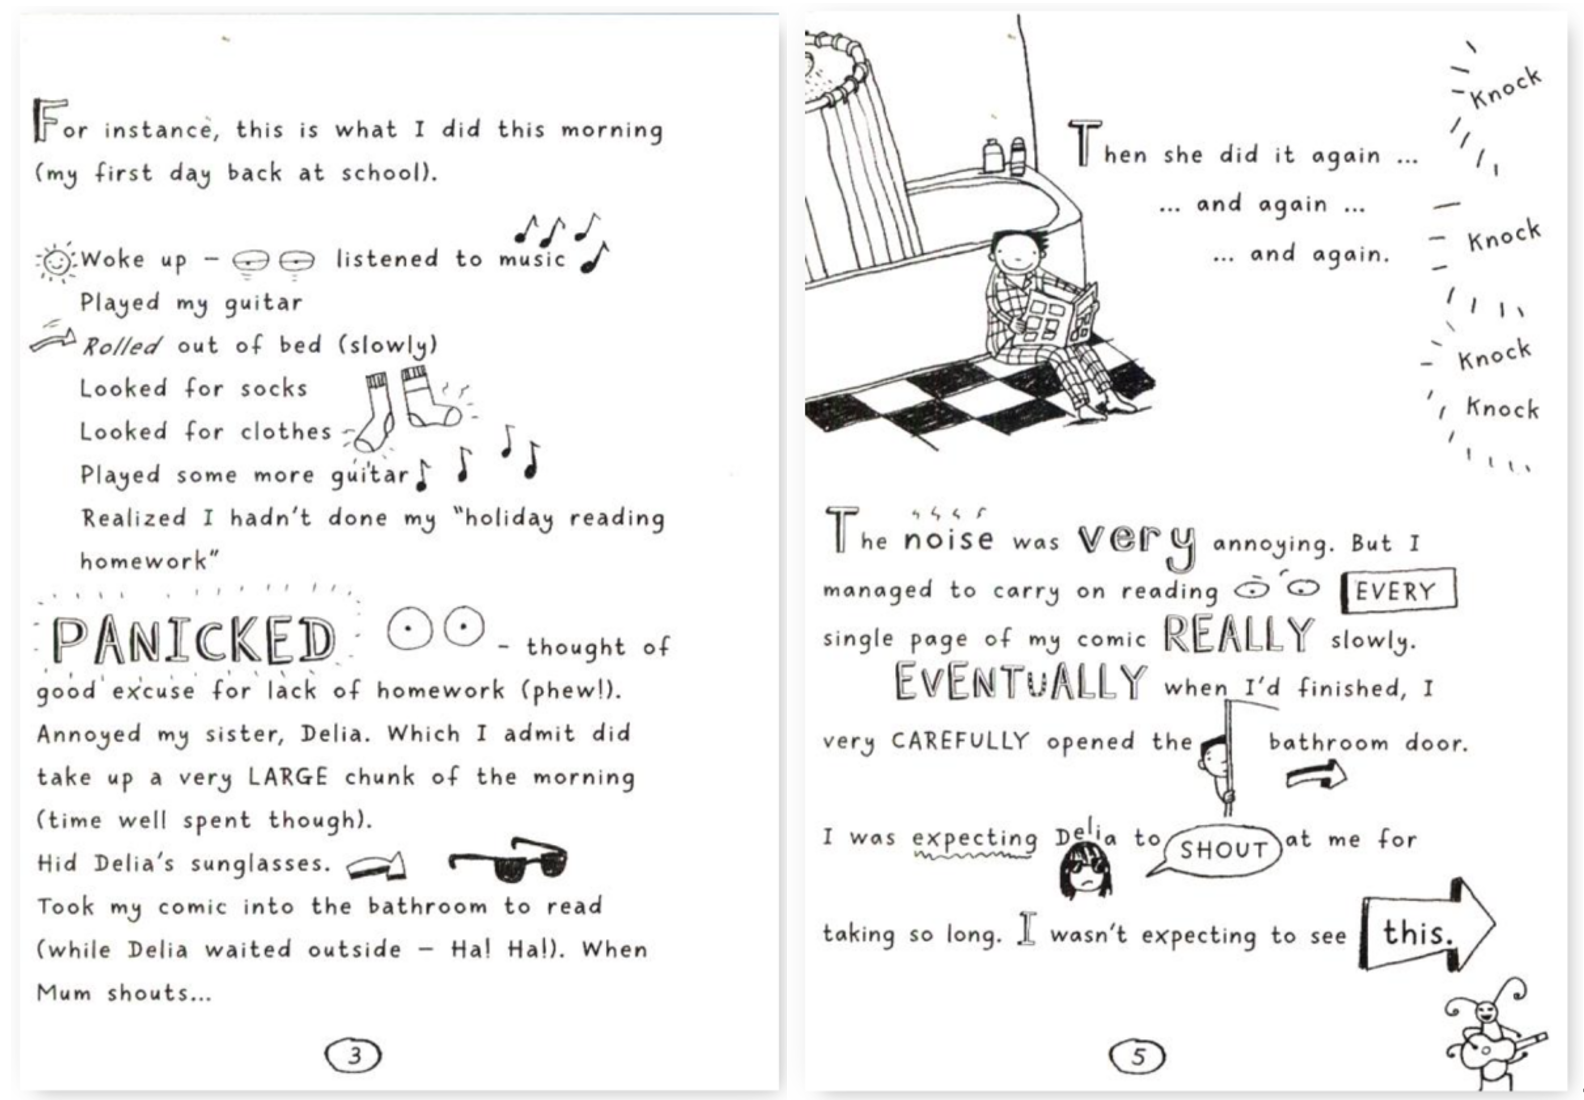 For instance, this is what I did this morning
(my first day back at school).
Woke up – listened to music
Played my guitar
Rolled out of bed (slowly)
Looked for socks
Looked for clothes
Played some more guitar
Realized I hadn't done my "holiday reading
homework"
PANICKED – thought of
good excuse for lack of homework (phew!).
Annoyed my sister, Delia. Which I admit did
take up a very LARGE chunk of the morning
(time well spent though).
Hid Delia's sunglasses.
Took my comic into the bathroom to read
(while Delia waited outside – Ha! Ha!). When
Mum shouts...
3
Then she did it again ...
... and again ...
... and again.
Knock
Knock
Knock
Knock
The noise was very annoying. But I
managed to carry on reading EVERY
single page of my comic REALLY slowly.
EVENTUALLY when I'd finished, I
very CAREFULLY opened the bathroom door.
I was expecting Delia to SHOUT at me for
taking so long. I wasn't expecting to see this.
5